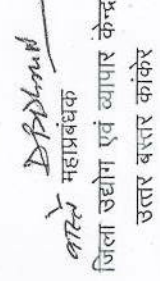 महाप्रबंधक
जिला उद्योग एवं व्यापार केन्द्र
उत्तर बस्तर कांकेर